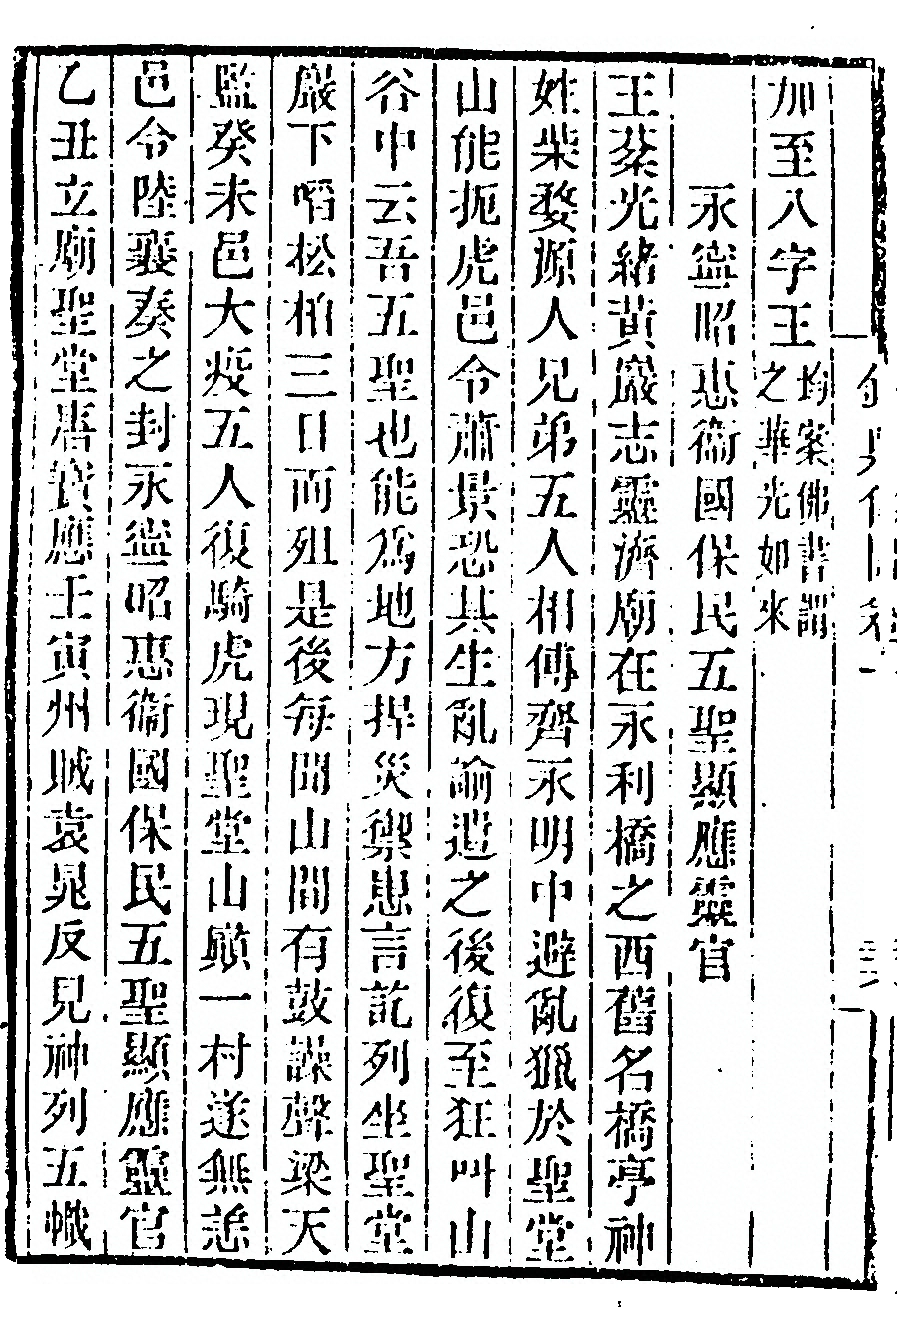 加至八字王均案佛書謂之華光如來
永寧昭惠衞國保民五聖顯應靈官
王棻光緒黃巖志靈濟廟在永利橋之西舊名橋亭神
姓柴婺源人兄弟五人相傳齊永明中避亂獵於聖堂
山能扼虎邑令蕭景恐其生亂諭遣之後復至狂叫山
谷中云吾五聖也能爲地方捍災禦患言訖列坐聖堂
巖下㗖松柏三日而殂是後每聞山間有鼓譟聲梁天
監癸未邑大疫五人復騎虎現聖堂山巔一村遂無恙
邑令陸襄奏之封永寧昭惠衞國保民五聖顯應靈官
乙丑立廟聖堂唐寶應壬寅州賊袁晁反見神列五幟